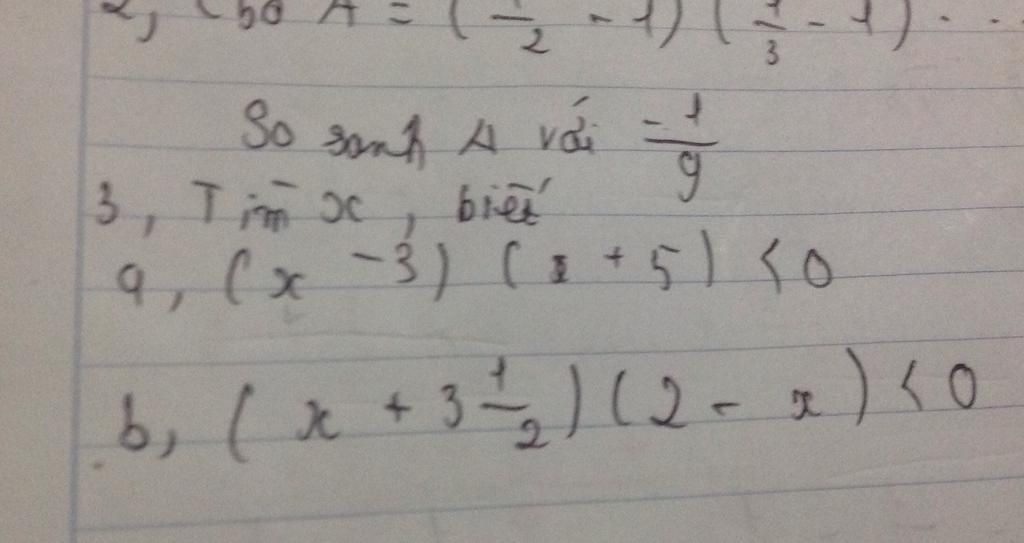 2, Cho A = (1/2 - 1) (1/3 - 1) . . .
So sánh A với -1/9
3, Tìm x, biết
a, (x - 3) (x + 5) < 0
b, (x + 3 1/2) (2 - x) < 0